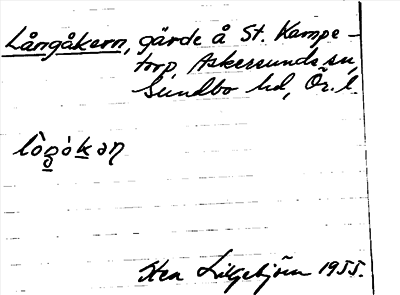 Långåkern, gärde å St. Kampe-
torp, Askersunds sn,
Sundbo hd, Ör. l.
lò̀gòkan
Liljebjörn 1955.